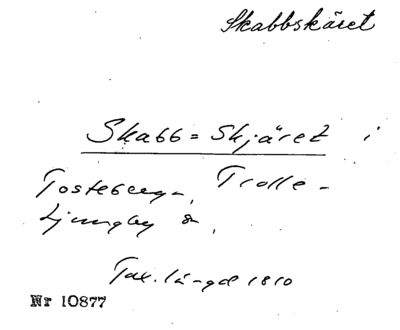 Skabbskäret
Skabb=Skjäret i
Tosteberga, Trolle-
Ljungby sn,
Tax.längd 1810
Nr 10877